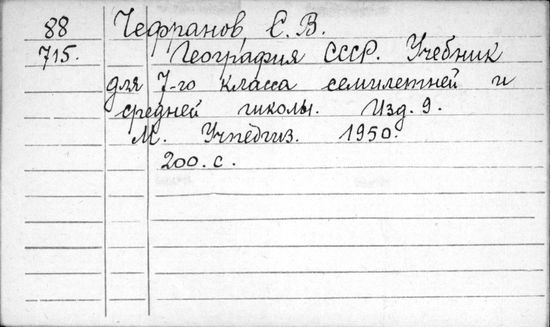 88 Чефранов, С. В.
715. География СССР. Учебник
для 7-го класса семилетней и
средней школы. Изд. 9.
М. Учпедгиз. 1950.
200. с.